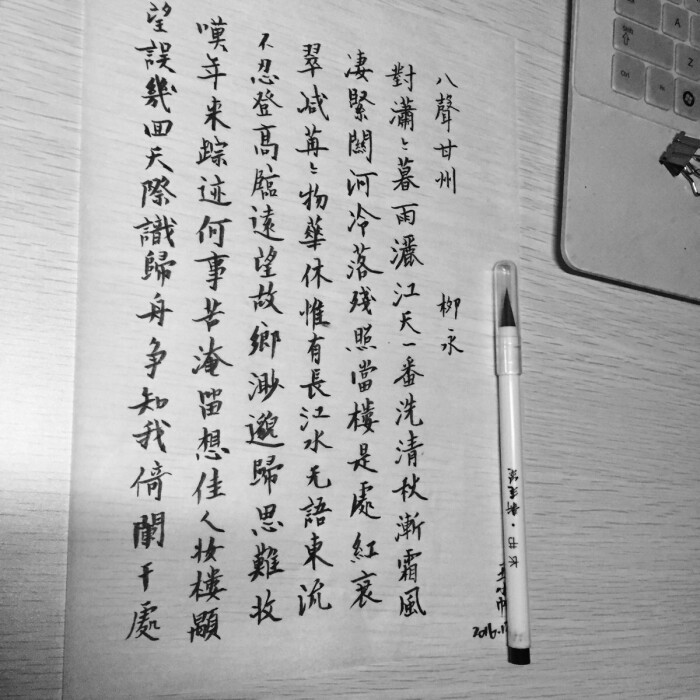 八聲甘州 柳永
對瀟〻暮雨灑江天一番洗清秋漸霜風
凄緊關河冷落殘照當樓是處紅衰
翠减苒〻物華休惟有長江水无語東流
不忍登高臨遠望故鄉渺邈歸思難收
嘆年来踪迹何事苦淹留想佳人妝樓顒
望誤幾回天際識歸舟争知我倚闌干處
2016.1
A
Z
Ctrl